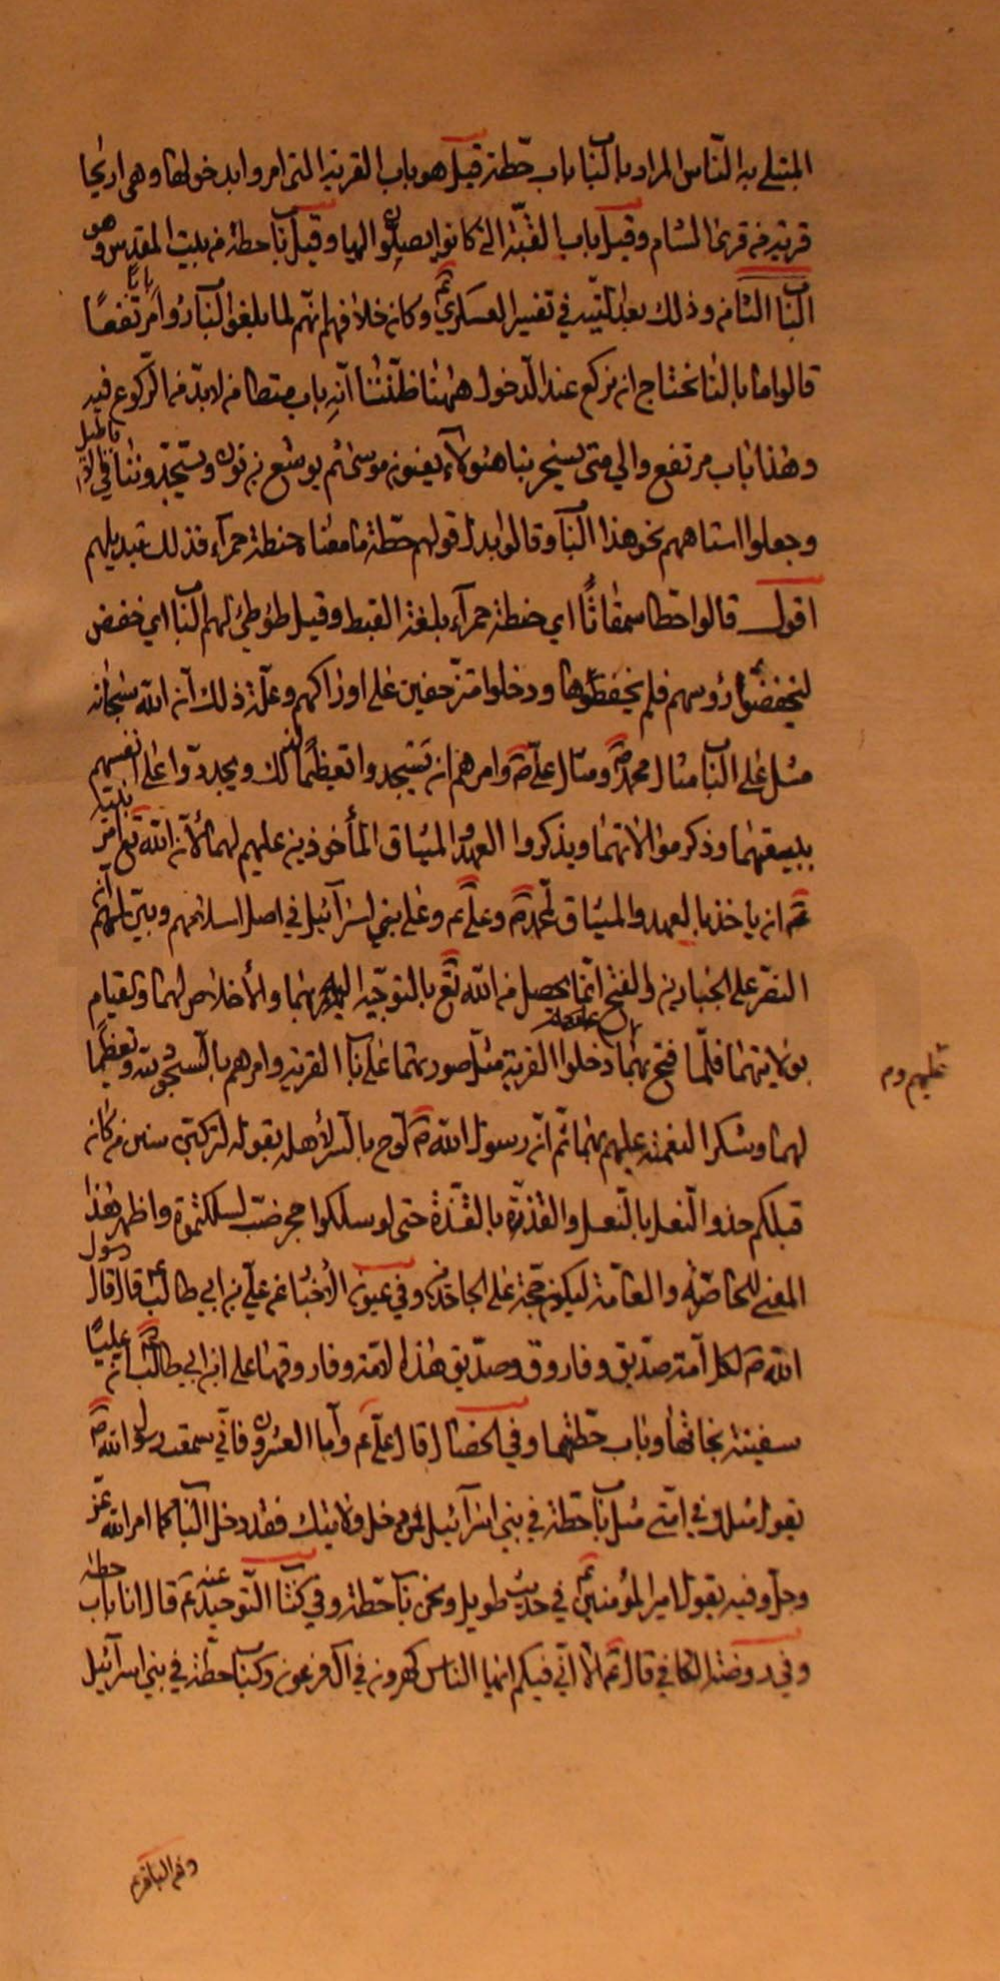 المبتلى به الناس المراد بالباب باب حطة قيل هو باب القرية التي امروا بدخولها وهي اريحا
قرية من قرى الشام وقيل باب القبة التي كانوا يصلون اليها وقيل باب حطة من بيت المقدس وهو
الباب الثامن وذلك بعد التيه في تفسير العسكري ع وكان خلافهم انهم لما بلغوا الباب راوا بابا مرتفعا
قالوا ما بالنا نحتاج ان نركع عند الدخول ههنا ظننا انه باب متطامن لا بد من الركوع فيه
وهذا باب مرتفع والى متى يسخر بنا هئولاء يعنون موسى ثم يوشع بن نون ويسجدوننا في الاباطيل
وجعلوا استاههم نحو هذا الباب وقالوا بدل قولهم حطة ما معناه حنطة حمرآء فذلك تبديلهم
اقول قالوا حطا سمقاثا اي حنطة حمرآء بلغة القبط وقيل طؤطئ لهم الباب اي خفض
ليخفضوا رؤسهم فلم يخفضوها ودخلوا متزحفين على اوراكهم وعلة ذلك ان الله سبحانه
مثل على الباب مثال محمد ص ومثال علي ع وامرهم ان يسجدوا تعظيما لذلك ويجددوا على انفسهم
بيعتهما وذكر موالاتهما ويذكروا العهد والميثاق المأخوذين عليهم لهما لان الله تع امر نبيه
ع ان ياخذ بالعهد والميثاق لمحمد ص وعلي ع وعلى بني اسرآئيل في اصل اسلامهم وبين لهم ان
النصر على الجبارين والفتح انما يحصل من الله تع بالتوجه اليه بهما والاخلاص لهما والقيام
بولايتهما فلما فتح بهما دخلوا القرية مثل صورتهما على باب القرية وامرهم بالسجود لله وتعظيما
عليهم وم
لهما وشكرا لنعمته عليهم بهما ثم ان رسول الله ص لوح بالسر لاهله بقوله لتركبن سنن من كان
قبلكم حذو النعل بالنعل والقذة بالقذة حتى لو سلكوا جحر ضب لسلكتموه واظهر هذا
المعنى للخاصة والعامة ليكون حجة على الجاحدين وفي عيون الاخبار عن علي بن ابي طالب ع قال قال رسول
الله ص لكل امة صديق وفاروق وصديق هذه الامة وفاروقها علي ابن ابي طالب ع ان عليا
سفينة نجاتها وباب حطتها وفي الخصال قال علي ع واما العشرون فاني سمعت رسول الله ص
يقول مثلك في امتي مثل باب حطة في بني اسرآئيل فمن دخل ولايتك فقد دخل الباب كما امر الله عز
وجل وفيه يقول امير المؤمنين ع في حديث طويل ونحن باب حطة وفي كتاب التوحيد عنه ع قال انا باب حطة
وفي روضة الكافي قال ع الا اني فيكم ايها الناس كهرون في ال فرعون وكباب حطة في بني اسرآئيل
وعن الباقر ع